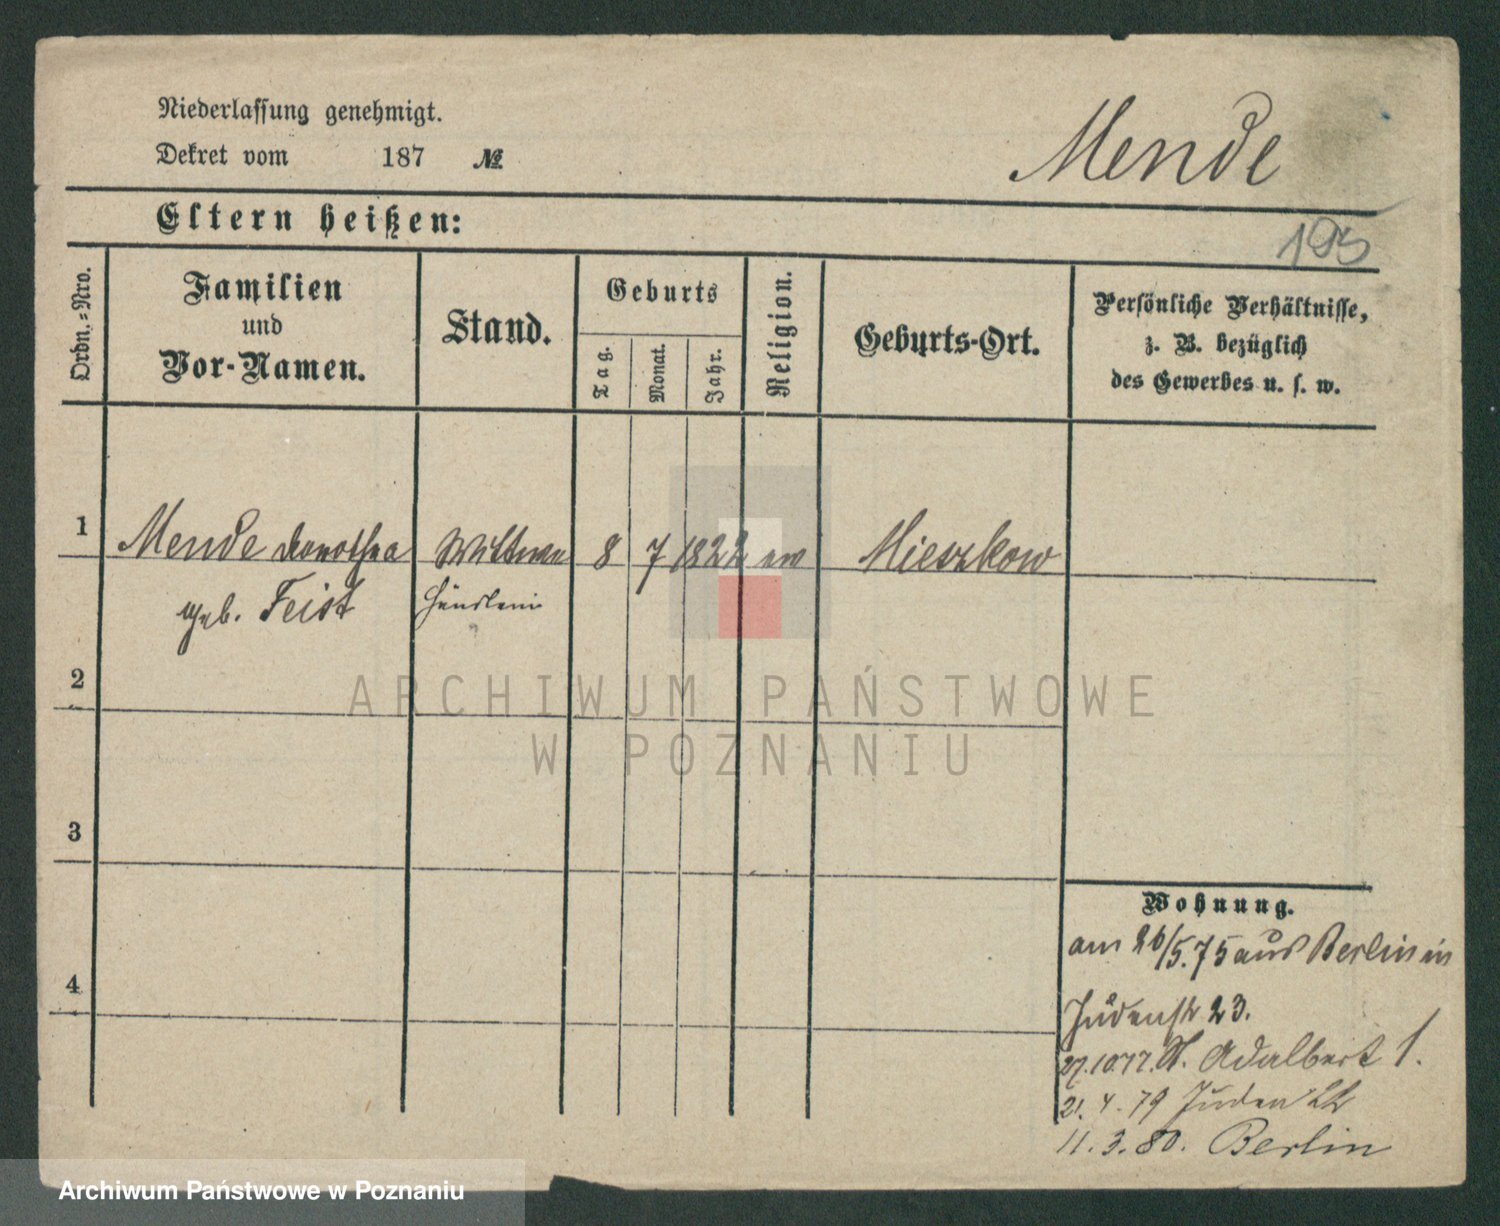 Niederlassung genehmigt.
Dekret vom 187 №
Mende
Eltern heißen:
193
Ordn.-Nro.
Familien
und
Vor-Namen.
Stand.
Geburts
Tag.
Monat.
Jahr.
Religion.
Geburts-Ort.
Persönliche Verhältnisse,
z. B. bezüglich
des Gewerbes u. s. w.
1 Mende Dorothea Wittwe 8 7 1822 ev Mieszkow
geb. Feist Händlerin
2
3
4
Wohnung.
am 26/5.75 aus Berlin in
Judenstr 23.
27.10.77. St. Adalbert 1.
21. 4. 79 Juden 22
11. 3. 80. Berlin
ARCHIWUM PAŃSTWOWE
W POZNANIU
Archiwum Państwowe w Poznaniu